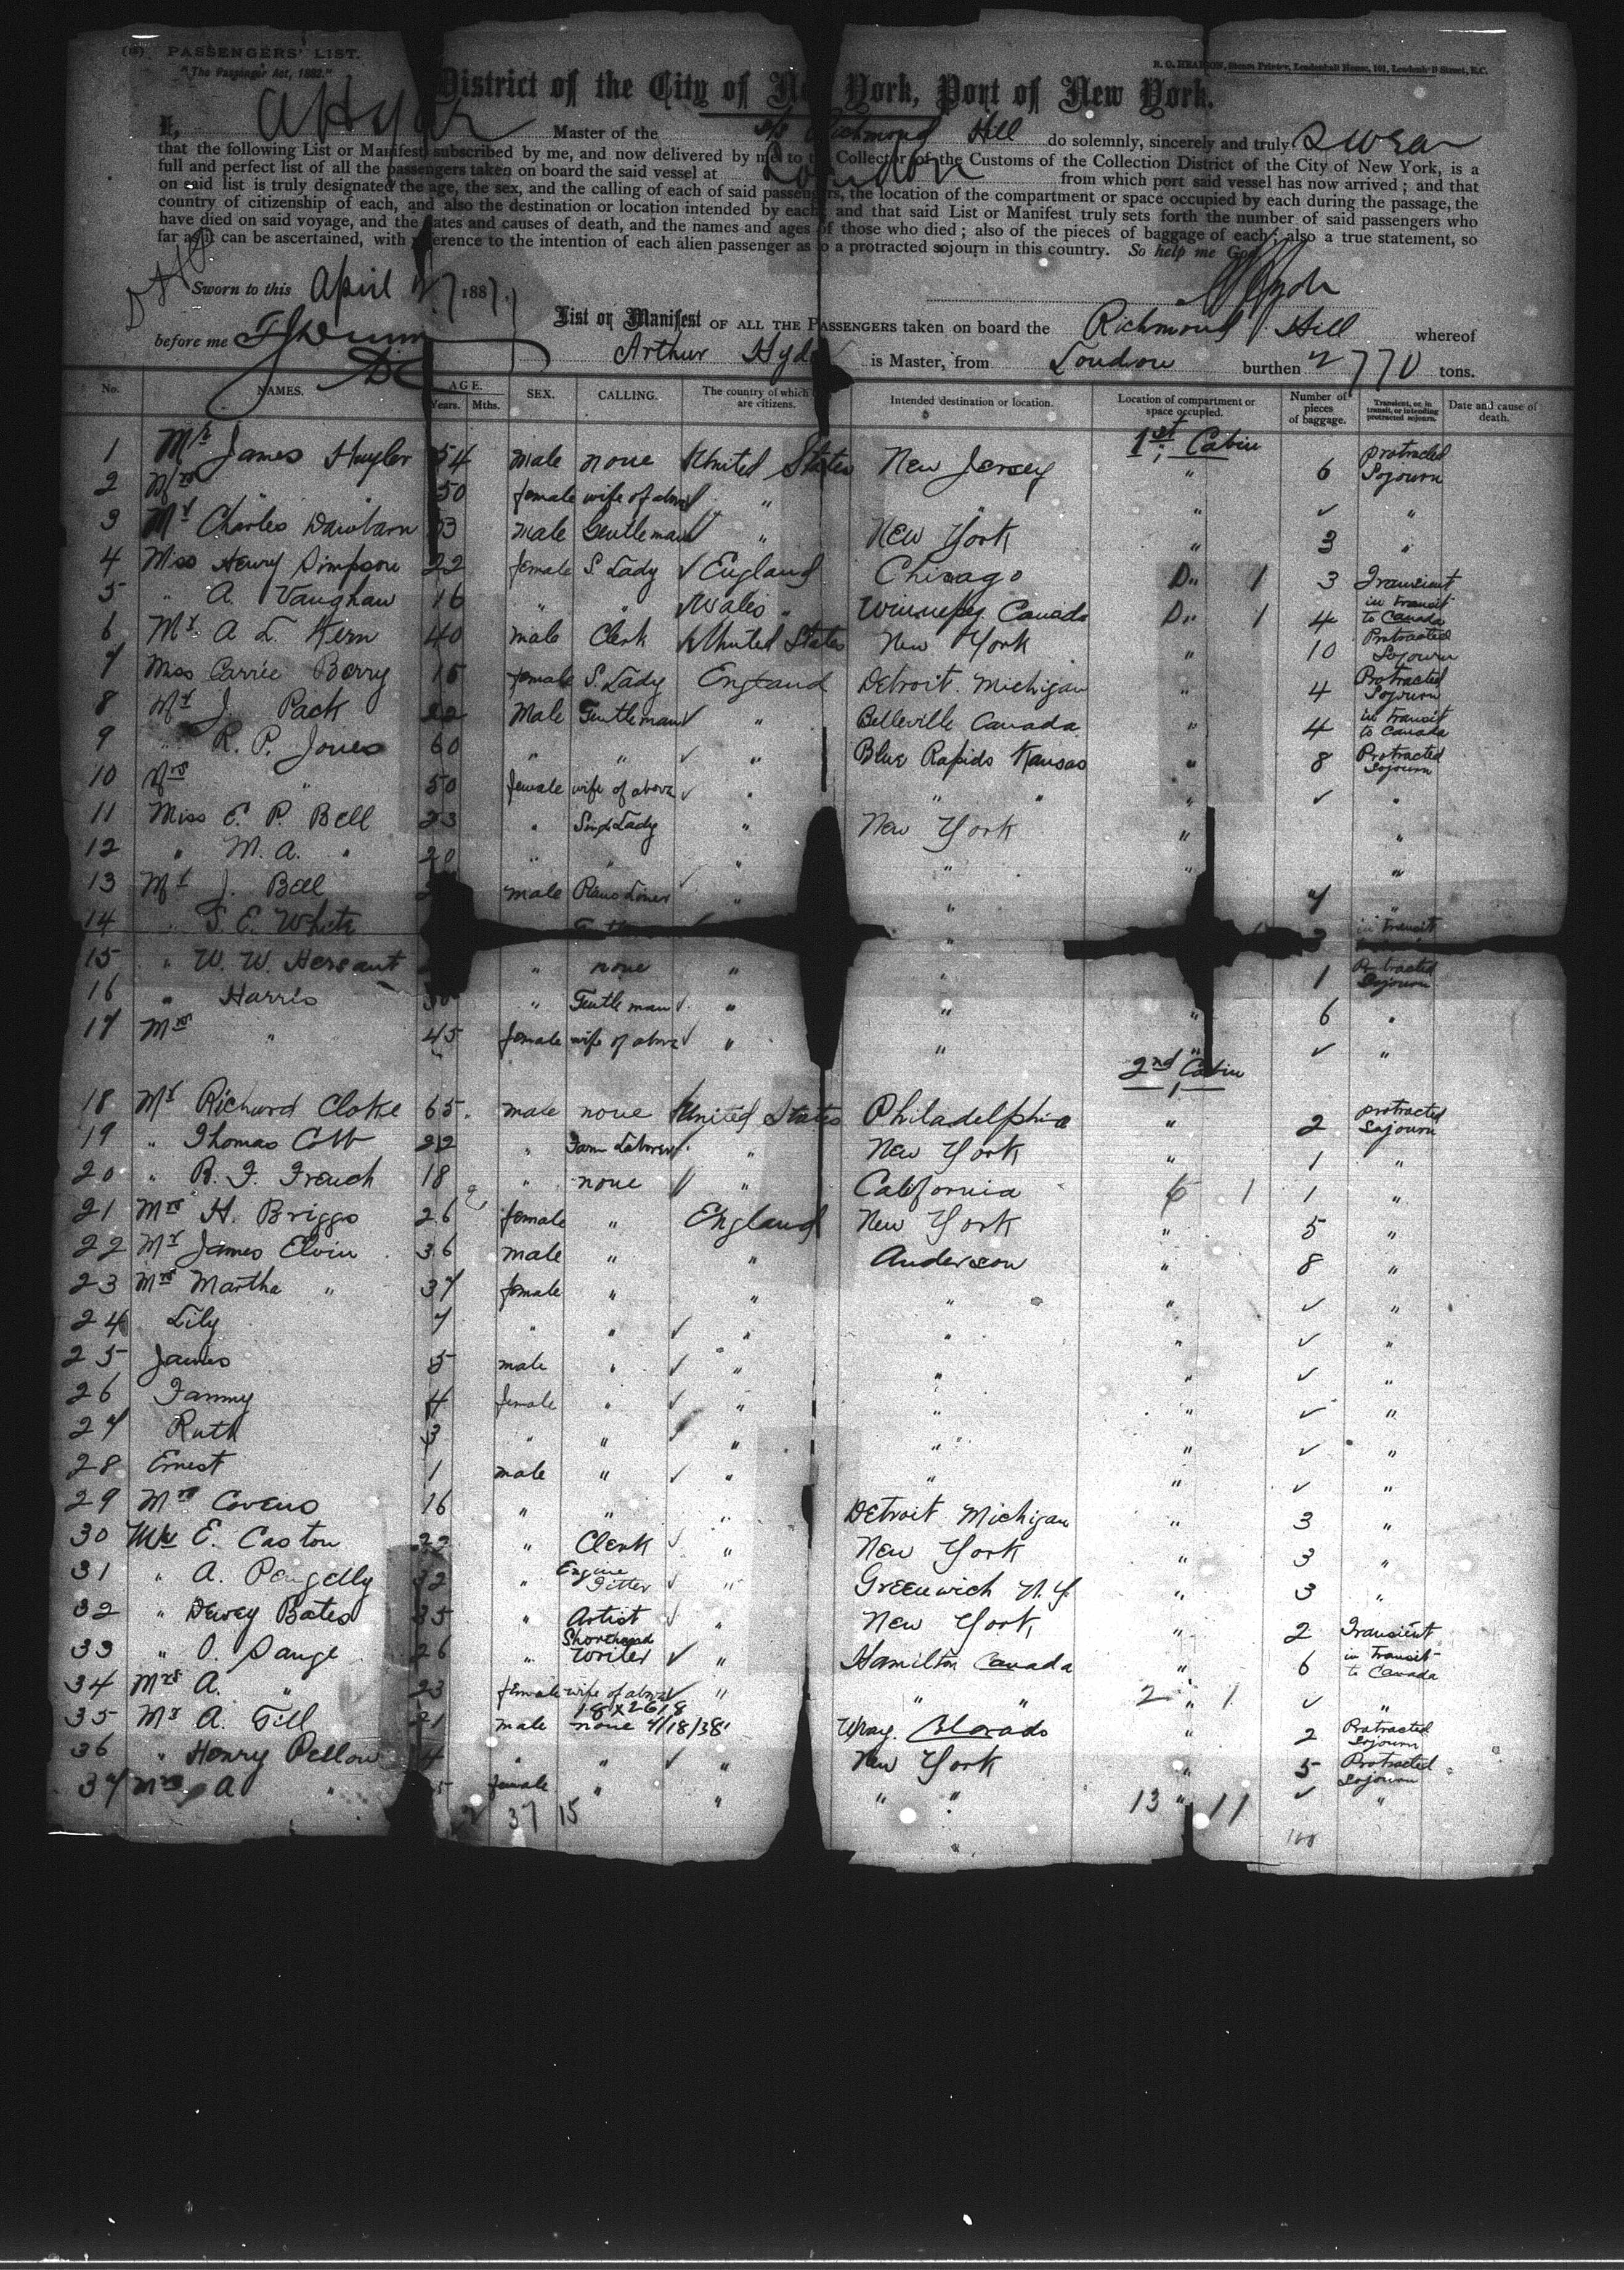 (18) PASSENGERS' LIST.
"The Passenger Act, 1882."
R. O. HEARSON, Steam Printer, Leadenhall House, 101, Leadenhall Street, E.C.
District of the City of New York, Port of New York.
I, A Hyde Master of the s/s Richmond Hill do solemnly, sincerely and truly swear
that the following List or Manifest subscribed by me, and now delivered by me to the Collector of the Customs of the Collection District of the City of New York, is a
full and perfect list of all the passengers taken on board the said vessel at London from which port said vessel has now arrived; and that
on said list is truly designated the age, the sex, and the calling of each of said passengers, the location of the compartment or space occupied by each during the passage, the
country of citizenship of each, and also the destination or location intended by each, and that said List or Manifest truly sets forth the number of said passengers who
have died on said voyage, and the dates and causes of death, and the names and ages of those who died; also of the pieces of baggage of each; also a true statement, so
far as it can be ascertained, with reference to the intention of each alien passenger as to a protracted sojourn in this country. So help me God
Sworn to this April 188 A Hyde
List or Manifest OF ALL THE PASSENGERS taken on board the Richmond Hill whereof
before me Arthur Hyde is Master, from London burthen 2770 tons.
No. NAMES. AGE. Years. Mths. SEX. CALLING. The country of which they are citizens. Intended destination or location. Location of compartment or space occupied. Number of pieces of baggage. Transient, or in transit, or intending protracted sojourn. Date and cause of death.
1st Cabin
1 Mr James Huyler 54 male none United States New Jersey " 6 protracted Sojourn
2 Mrs " " 50 female wife of above " " " ✓ "
3 Mr Charles Dawbarn 53 male Gentleman " New York " 3 "
4 Miss Henry Simpson 22 female S. Lady ✓ England Chicago D" 1 3 Transient
5 " A. Vaughan 16 " " ✓ Wales " Winnepeg Canada D" 1 4 in transit to Canada
6 Mr A L. Kern 40 male Clerk United States New York " 10 Protracted Sojourn
7 Miss Carrie Berry 15 female S. Lady England Detroit. Michigan " 4 Protracted Sojourn
8 Mr J. Pack 22 Male Gentleman ✓ " Belleville Canada " 4 in transit to Canada
9 " R. P. Jones 60 " " ✓ " Blue Rapids Kansas " 8 Protracted Sojourn
10 Mrs " 50 female wife of above ✓ " " " " ✓ "
11 Miss E. P. Bell 23 " Sing Lady " New York " "
12 " M. A. " 20 " " " " " "
13 Mr J. Bell male ✓ " " " 7 "
14 " S. E. White " 3 in transit
15 " W. W. Hersant " none " " 1 Protracted Sojourn
16 " Harris " Gentleman ✓ " " " 6 "
17 Mrs " 45 female wife of above ✓ " " " ✓ "
2nd Cabin
18 Mr Richard Cloke 65 male none United States Philadelphia " 2 protracted Sojourn
19 " Thomas Cobb 22 " Farm Laborer ✓ " New York " 1 "
20 " B. F. French 18 " none ✓ " California 6 1 1 "
21 Mrs H. Briggs 26 female " England New York " 5 "
22 Mr James Elvin 36 male " " Anderson " 8 "
23 Mrs Martha " 37 female " " " " ✓ "
24 Lily 7 " " ✓ " " " ✓ "
25 James 5 male " ✓ " " " ✓ "
26 Fanny 4 female " ✓ " " " ✓ "
27 Ruth 3 " " ✓ " " " ✓ "
28 Ernest 1 male " ✓ " " " ✓ "
29 Mrs Covens 16 " " " Detroit Michigan " 3 "
30 E. Caston 22 " Clerk ✓ " New York " 3 "
31 " A. Pengelly 32 " Engine Fitter ✓ " Greenwich N.Y. " 3 "
32 " Dewey Bates 35 " Artist ✓ " New York " 2 Transient
33 " O. Sange 26 " Shorthand Writer ✓ " Hamilton Canada " 6 in transit to Canada
34 Mrs A. " 23 female wife of above ✓ " " " 2 " 1 ✓ "
18 x 2618
35 Mr A. Gill 21 male none 4/18/38 " Wray. Colorado " 2 Protracted Sojourn
36 " Henry Pellow 4 " " ✓ " New York " 5 Protracted Sojourn
37 Mrs A " 5 female " " " " 13 " 11 ✓ "
2 37 15